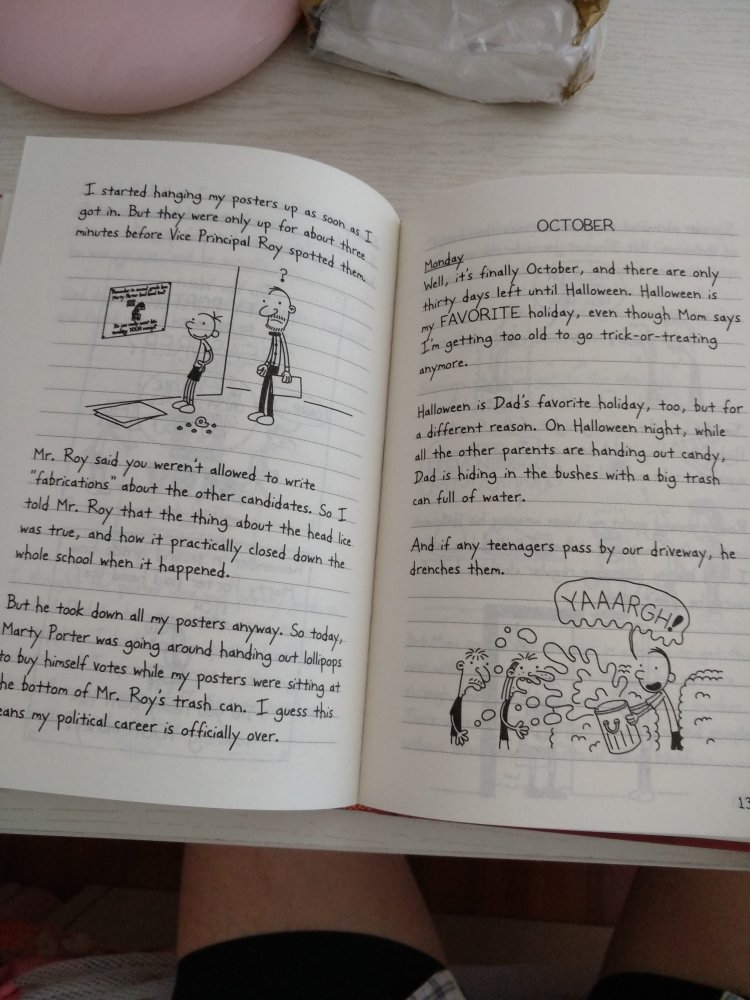 I started hanging my posters up as soon as I
got in. But they were only up for about three
minutes before Vice Principal Roy spotted them.
?
Mr. Roy said you weren't allowed to write
"fabrications" about the other candidates. So I
told Mr. Roy that the thing about the head lice
was true, and how it practically closed down the
whole school when it happened.
But he took down all my posters anyway. So today,
Marty Porter was going around handing out lollipops
to buy himself votes while my posters were sitting at
he bottom of Mr. Roy's trash can. I guess this
eans my political career is officially over.
OCTOBER
Monday
Well, it's finally October, and there are only
thirty days left until Halloween. Halloween is
my FAVORITE holiday, even though Mom says
I'm getting too old to go trick-or-treating
anymore.
Halloween is Dad's favorite holiday, too, but for
a different reason. On Halloween night, while
all the other parents are handing out candy,
Dad is hiding in the bushes with a big trash
can full of water.
And if any teenagers pass by our driveway, he
drenches them.
YAAARGH!
13